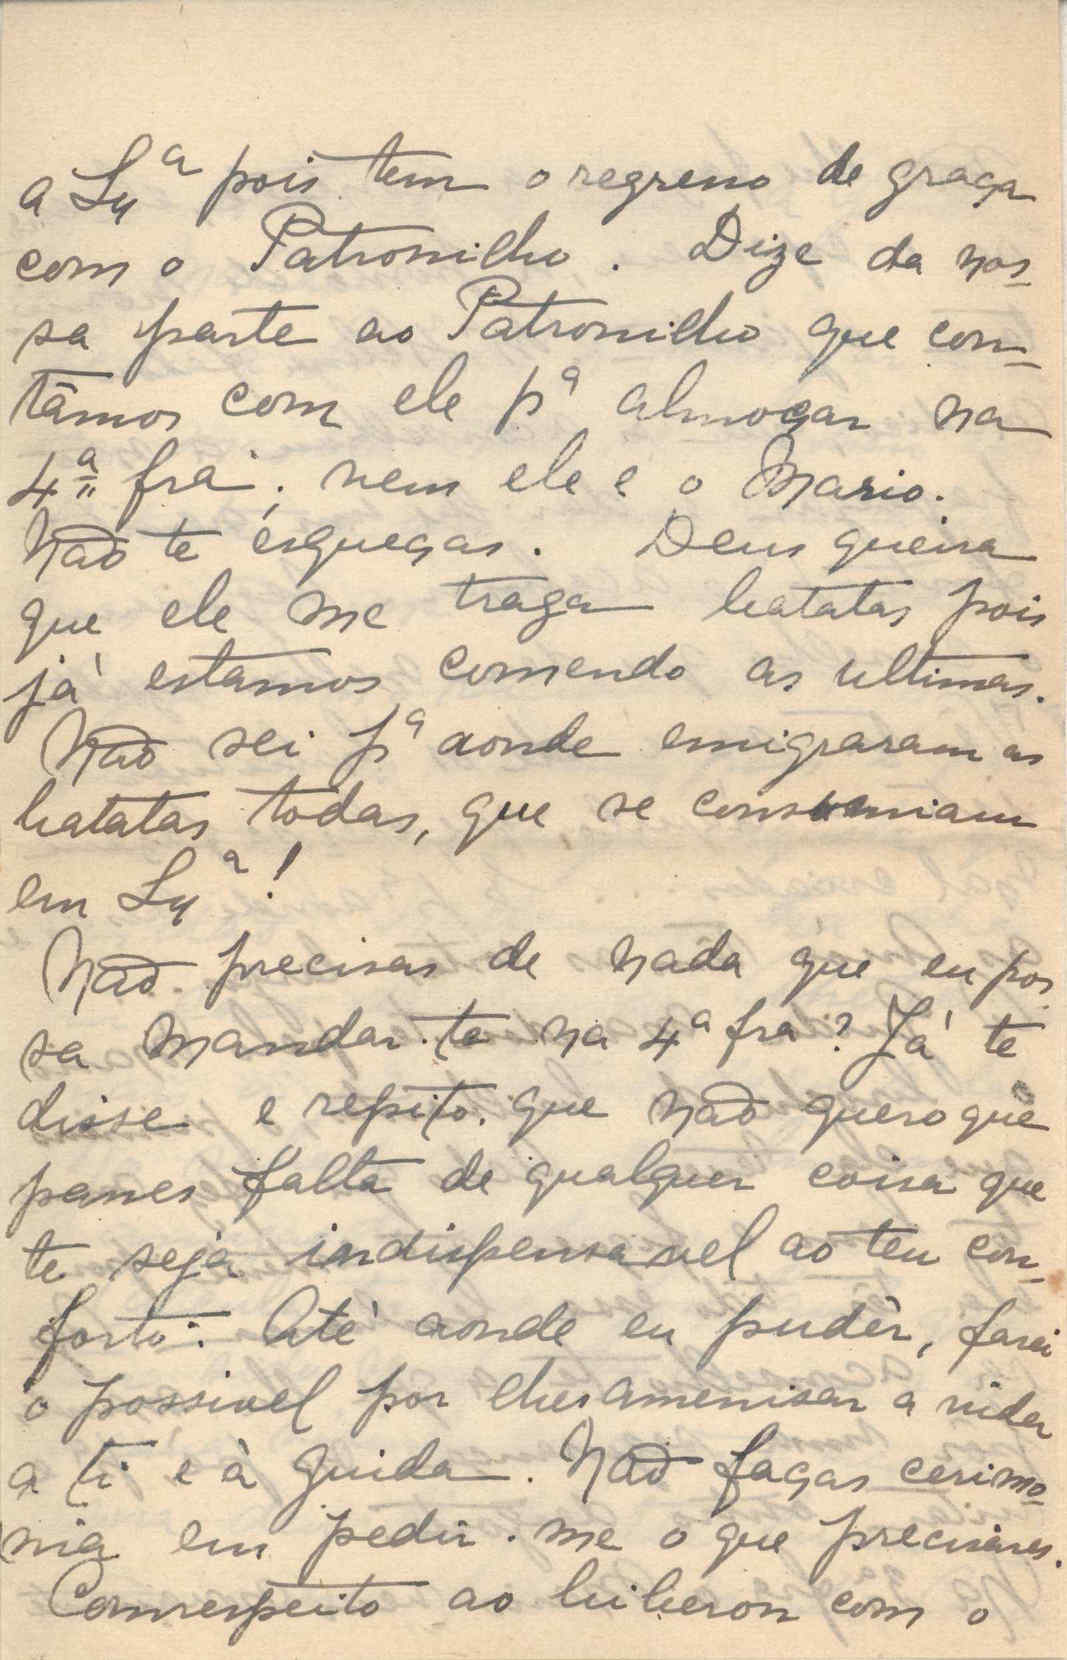 a Lxª pois tem o regresso de graça
com o Patronilho. Dize da nos-
sa parte ao Patronilho que con-
tâmos com ele pª almoçar na
4ª frª; vem ele e o Mario.
Não te esqueças. Deus queira
que ele me traga batatas pois
já estamos comendo as ultimas.
Não sei pª aonde emigraram as
batatas todas, que se consumiam
em Lxª!
Não precisas de nada que eu pos-
sa mandar-te na 4ª frª? Já te
disse e repito que não quero que
passes falta de qualquer coisa que
te seja indispensavel ao teu con-
forto. Até aonde eu pudêr, farei
o possivel por lhes amenisar a vida
a ti e à Guida. Não faças cerimo-
nia em pedir-me o que precisares.
Com respeito ao biberon com o